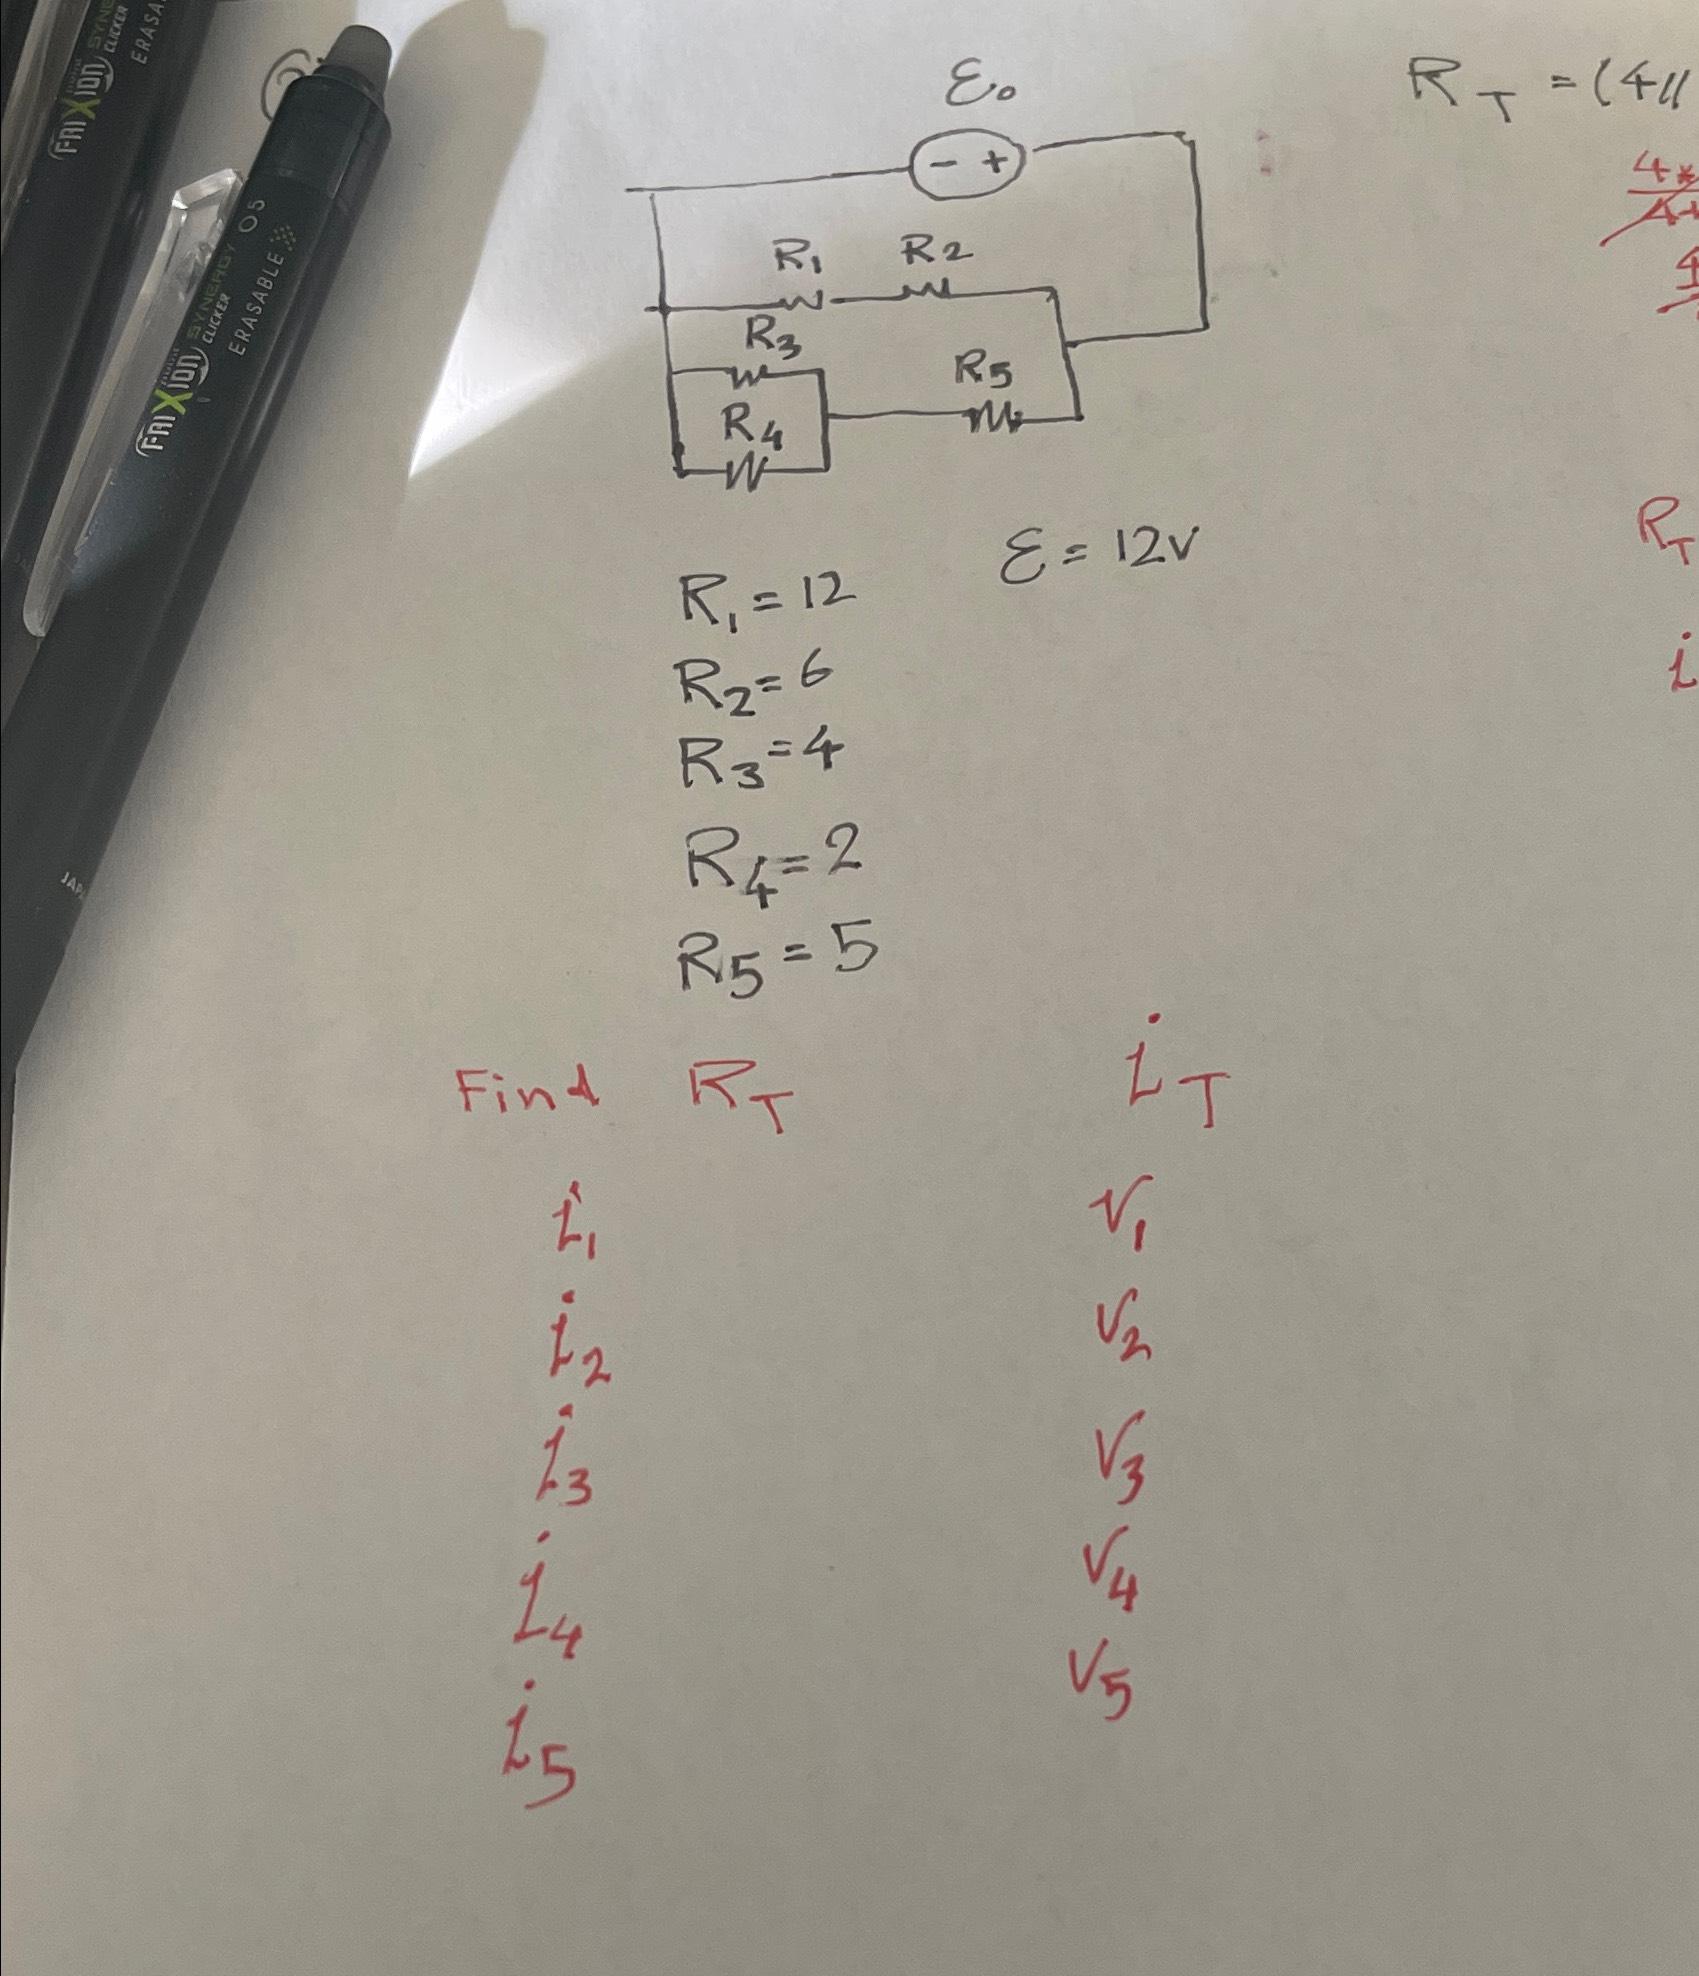 FRIXION SYNERGY CLICKER
ERASA
FRIXION SYNERGY CLICKER 05
ERASABLE
JAPA
ε₀
- +
R₁ R2
R3
R5
R4
ε = 12V
R₁ = 12
R2 = 6
R3 = 4
R4 = 2
R5 = 5
Find RT iT
i₁ V₁
i2 V2
i3 V3
i4 V4
i5 V5
RT = (4//
4*
4+
4
RT
i